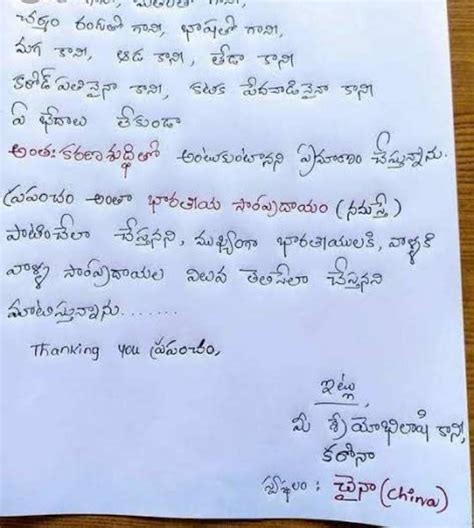 చర్మం రంగుతో గాని, భాషతో గాని,
మగ కాని, ఆడ కాని, తేడా కాని
కరోడ్ పతినైనా కాని, కటిక పేదవాడినైనా కాని
ఏ భేదాలు లేకుండా
అంతఃకరణశుద్ధితో అంటుకుంటానని ప్రమాణం చేస్తున్నాను.
ప్రపంచం అంతా భారతీయ సాంప్రదాయం (నమస్తే)
పాటించేలా చేస్తానని, ముఖ్యంగా భారతీయులకి, వాళ్ళకి
వాళ్ళ సాంప్రదాయల విలువ తెలిసేలా చేస్తానని
మాటిస్తున్నాను.......
Thanking you ప్రపంచం,
ఇట్లు,
మీ శ్రేయోభిలాషి కాని,
కరోనా
స్థలం : చైనా (China)